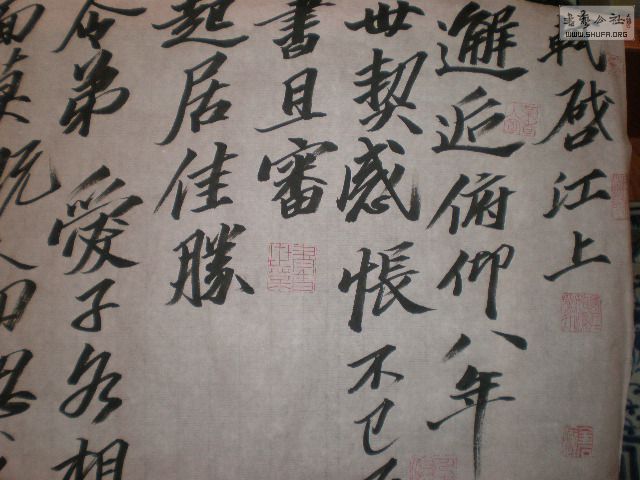 軾啓江上
邂逅俯仰八年
世契感悵不已
書且審
起居佳勝
令弟愛子各相
面莫既人回
書藝公社
WWW.SHUFA.ORG